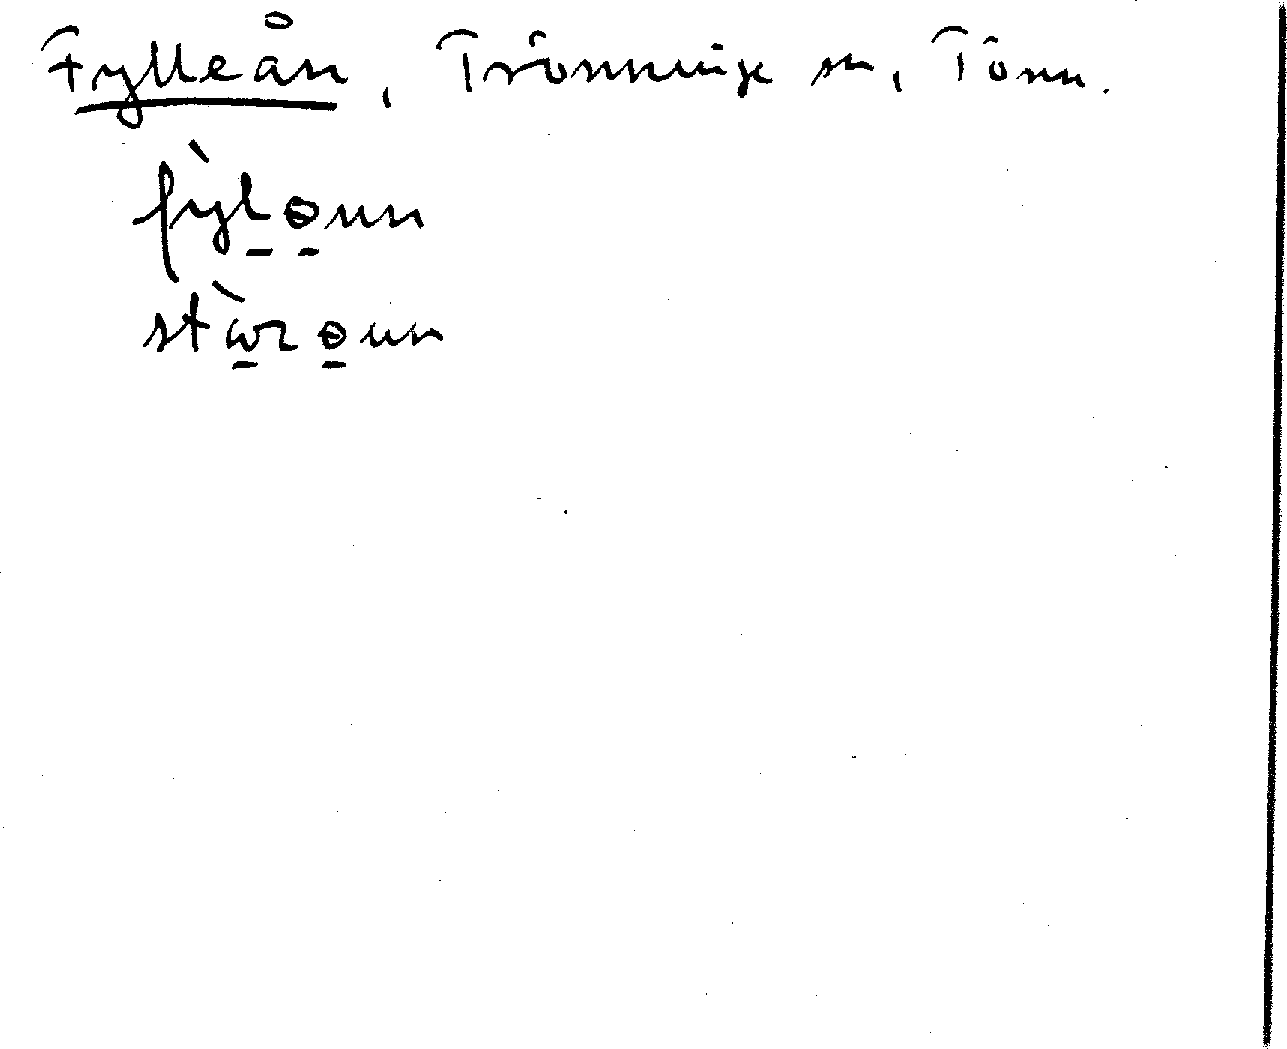 Fylleån, Trönninge sn, Tönn.
fỳl̠ɵ̠nn
stɷ̠̀rɵ̠nn